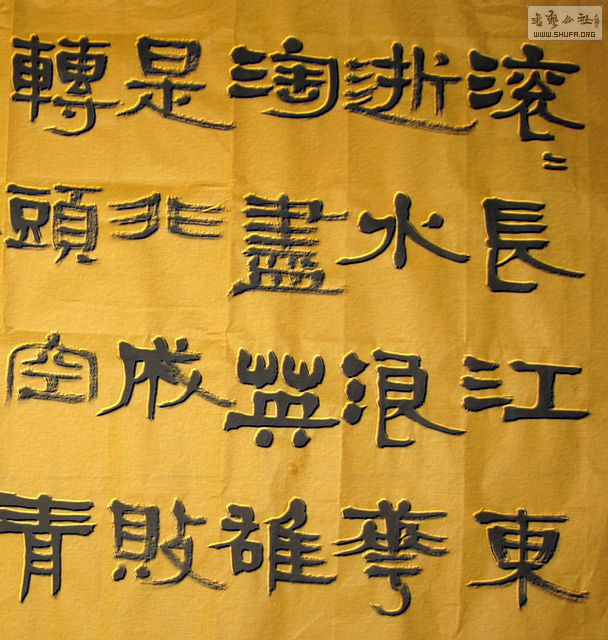 滚〻長江東
逝水浪華
淘盡英雄
是非成敗
轉頭空青
書藝公社
WWW.SHUFA.ORG